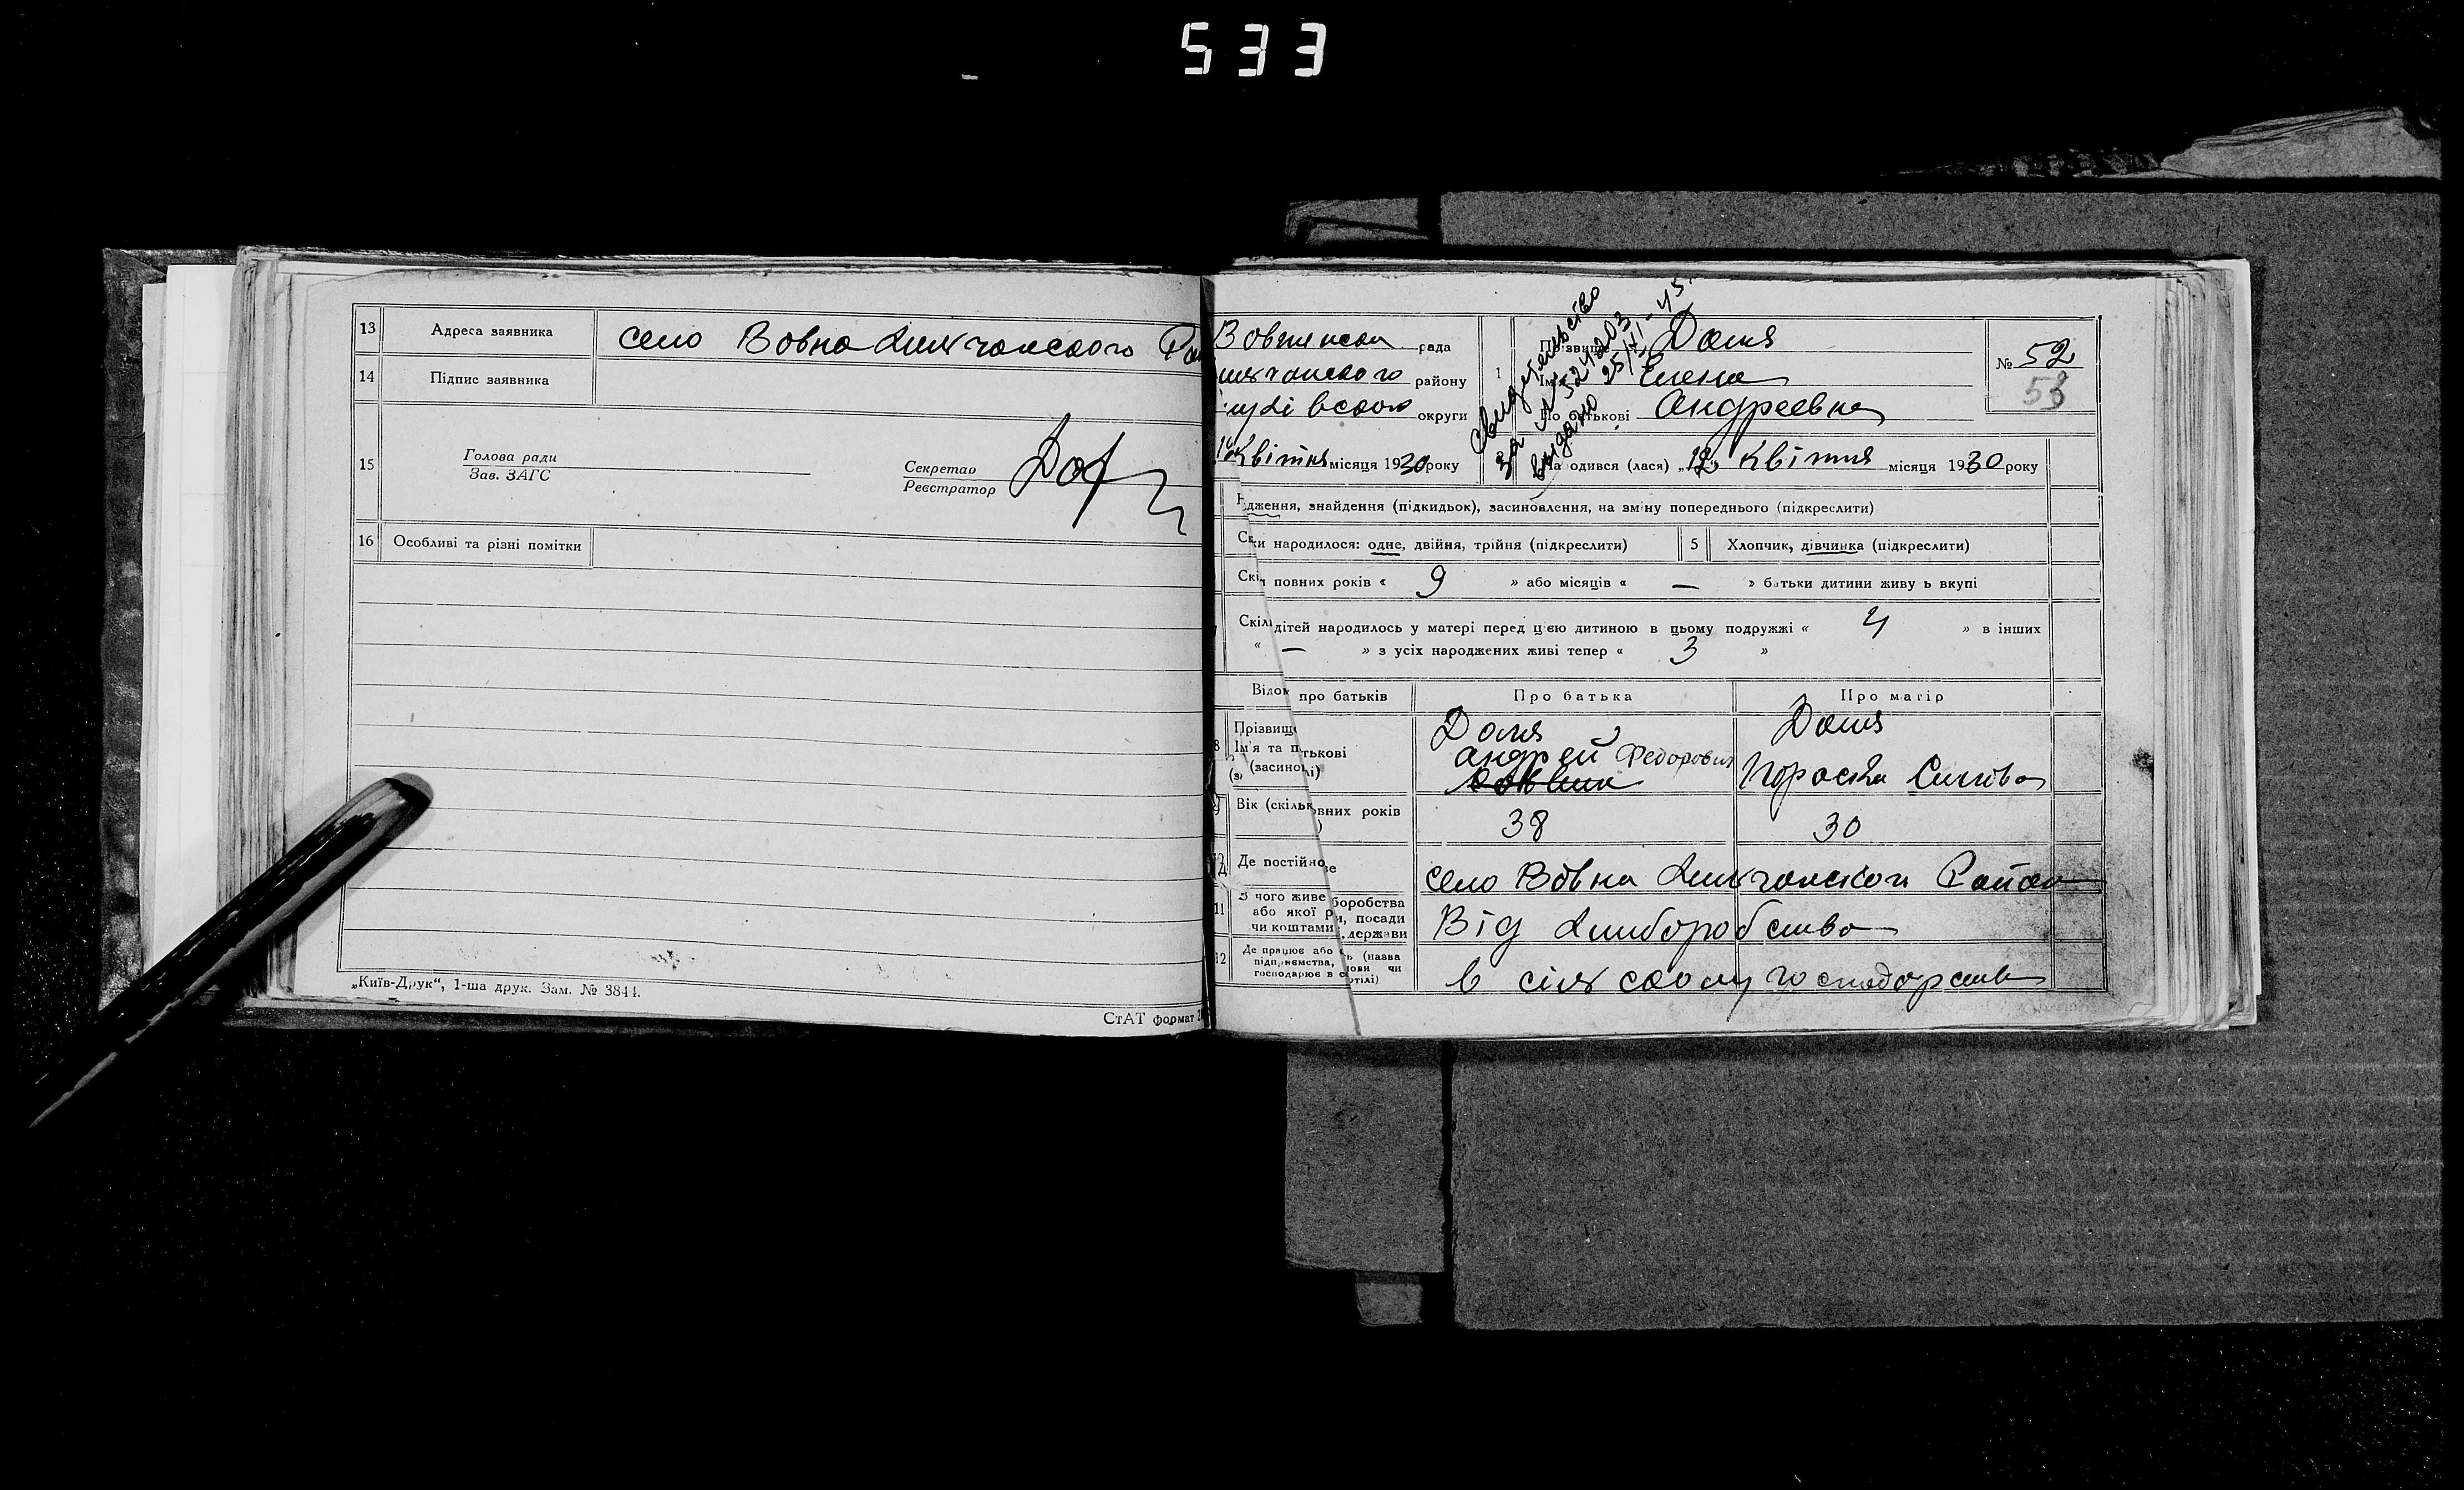 533
13 Адреса заявника село Вовна
14 Підпис заявника
15 Голова ради
Зав. ЗАГС
Секретар
Реєстратор
16 Особливі та різні помітки
„Київ-Друк“, 1-ша друк. Зам. № 3844.
СтАТ формат
рада
району
округи
Квітня місяця 1930 року
свидетельство
выдано
1 Прізвище Доля
Ім'я Елена
По батькові Андреевна
№ 52
53
Народився (лася) „12“ Квітня місяця 1930 року
дження, знайдення (підкидьок), засиновлення, на зміну попереднього (підкреслити)
ки народилося: одне, двійня, трійня (підкреслити)
5 Хлопчик, дівчинка (підкреслити)
Скі повних років « 9 » або місяців « — » батьки дитини живуть вкупі
Скіль дітей народилось у матері перед цією дитиною в цьому подружжі « 4 » в інших
« — » з усіх народжених живі тепер « 3 »
Відом про батьків Про батька Про матір
8 Прізвище
Ім'я та тькові
(засино лі)
Доля
Андрей Федорович
Доля
Вік (скільк вних років
38 30
Де постійно
село Вовна
11 З чого живе боробства
або якої р и, посади
чи коштами держави
Від
12 Де працює або ь (назва
підприємства,
господарює в
в